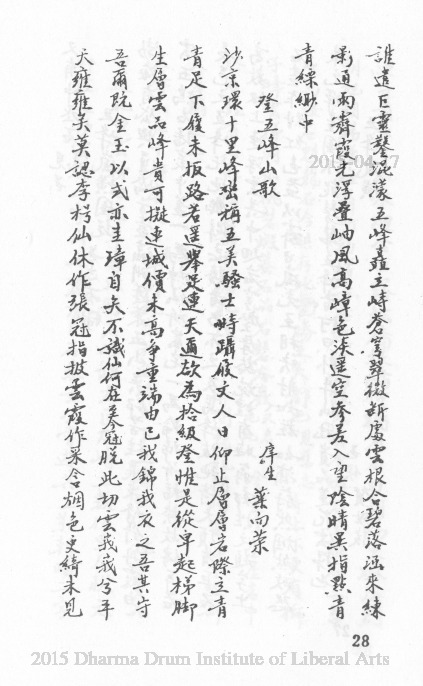 誰遣巨靈鑿混濛五峰矗立峙蒼穹翠微斷處雲根合碧落涵來練
影通雨霽霞光浮疊岫風高嶂色淡遥空參差入望陰晴異指點青
青縹緲中
登五峰山歌
庠生 葉向榮
沙京環十里峰巒稱五美騷士時躡屐文人日仰止層層岩際立青
青足下履未扳路若遥舉足連天邇欲為拾級登惟是從卑起梯脚
生層雲品峰貴可擬連城價未高爭重端由已我錦我衣之吾其守
吾爾既金玉以式亦圭璋自矢不識仙何在冠脱此切雲峩峩兮平
天雍雍矣莫認李樗仙休作張冠指披雲霞作采含烟色更綺未見
28
2015 Dharma Drum Institute of Liberal Arts